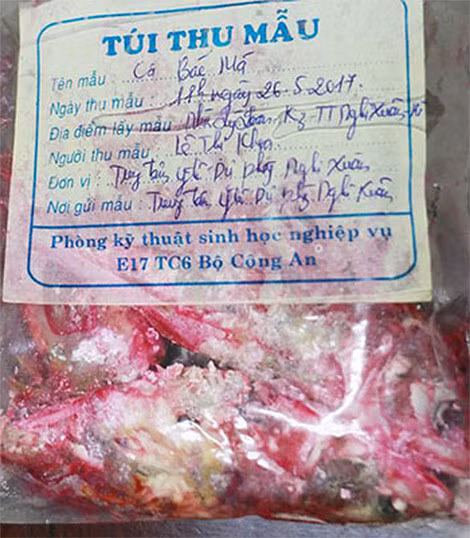 TÚI THU MẪU
Tên mẫu : Cá Bác Mạ
Ngày thu mẫu : 11h ngày 26-5-2017.
Địa điểm lấy mẫu K3 - TT Nghi Xuân
Người thu mẫu : Lê Thị
Đơn vị : Trung tâm ytế Dự phòng Nghi Xuân
Nơi gửi mẫu : Trung tâm ytế Dự phòng Nghi Xuân
Phòng kỹ thuật sinh học nghiệp vụ
E17 TC6 Bộ Công An